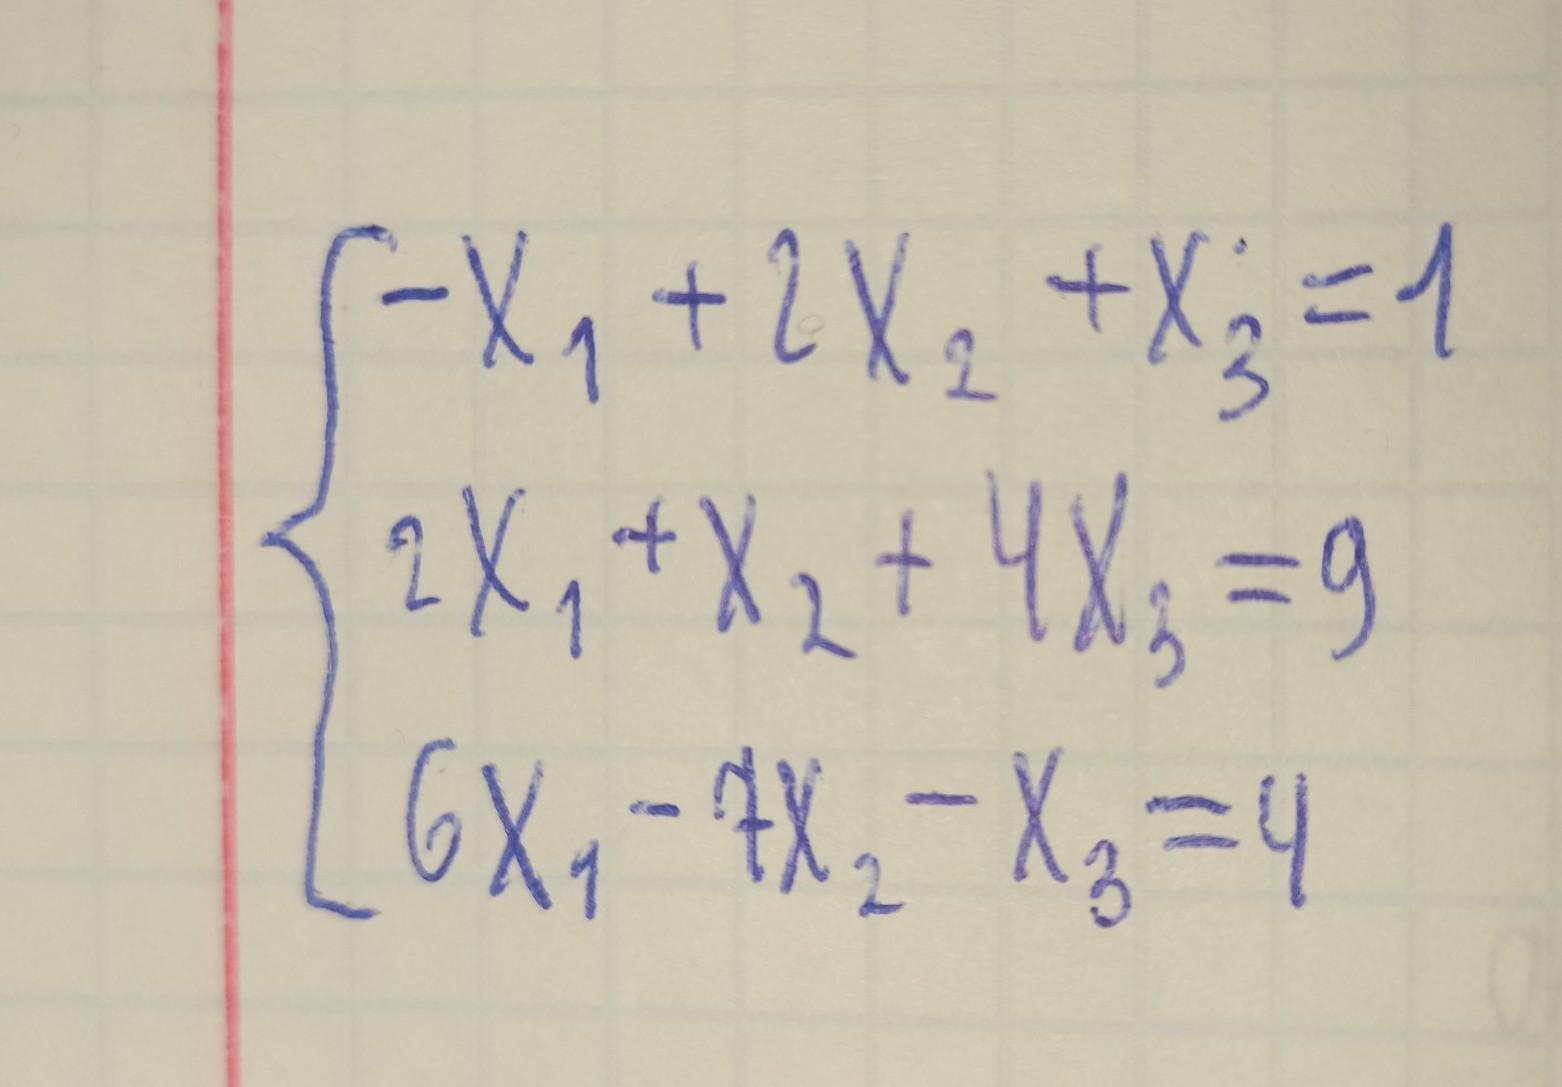 -x₁ + 2x₂ + x₃ = 1
2x₁ + x₂ + 4x₃ = 9
6x₁ - 7x₂ - x₃ = 4